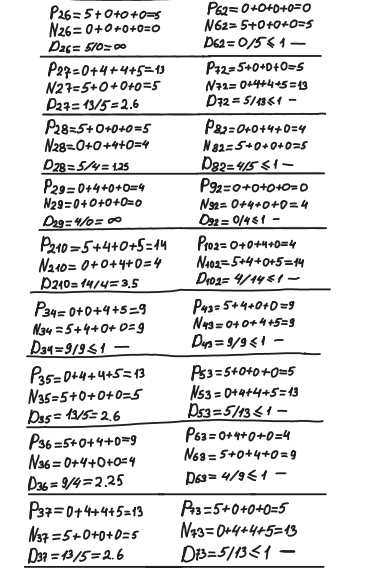 P26=5+0+0+0=5
N26=0+0+0+0=0
D26=5/0=∞
P62=0+0+0+0=0
N62=5+0+0+0=5
D62=0/5≤1 —
P27=0+4+4+5=13
N27=5+0+0+0=5
D27=13/5=2.6
P72=5+0+0+0=5
N72=0+4+4+5=13
D72=5/13≤1 —
P28=5+0+0+0=5
N28=0+0+4+0=4
D28=5/4=1.25
P82=0+0+4+0=4
N82=5+0+0+0=5
D82=4/5≤1 —
P29=0+4+0+0=4
N29=0+0+0+0=0
D29=4/0=∞
P92=0+0+0+0=0
N92=0+4+0+0=4
D92=0/4≤1 —
P210=5+4+0+5=14
N210=0+0+4+0=4
D210=14/4=3.5
P102=0+0+4+0=4
N102=5+4+0+5=14
D102=4/14≤1 —
P34=0+0+4+5=9
N34=5+4+0+0=9
D34=9/9≤1 —
P43=5+4+0+0=9
N43=0+0+4+5=9
D43=9/9≤1 —
P35=0+4+4+5=13
N35=5+0+0+0=5
D35=13/5=2.6
P53=5+0+0+0=5
N53=0+4+4+5=13
D53=5/13≤1 —
P36=5+0+4+0=9
N36=0+4+0+0=4
D36=9/4=2.25
P63=0+4+0+0=4
N63=5+0+4+0=9
D63=4/9≤1 —
P37=0+4+4+5=13
N37=5+0+0+0=5
D37=13/5=2.6
P73=5+0+0+0=5
N73=0+4+4+5=13
D73=5/13≤1 —